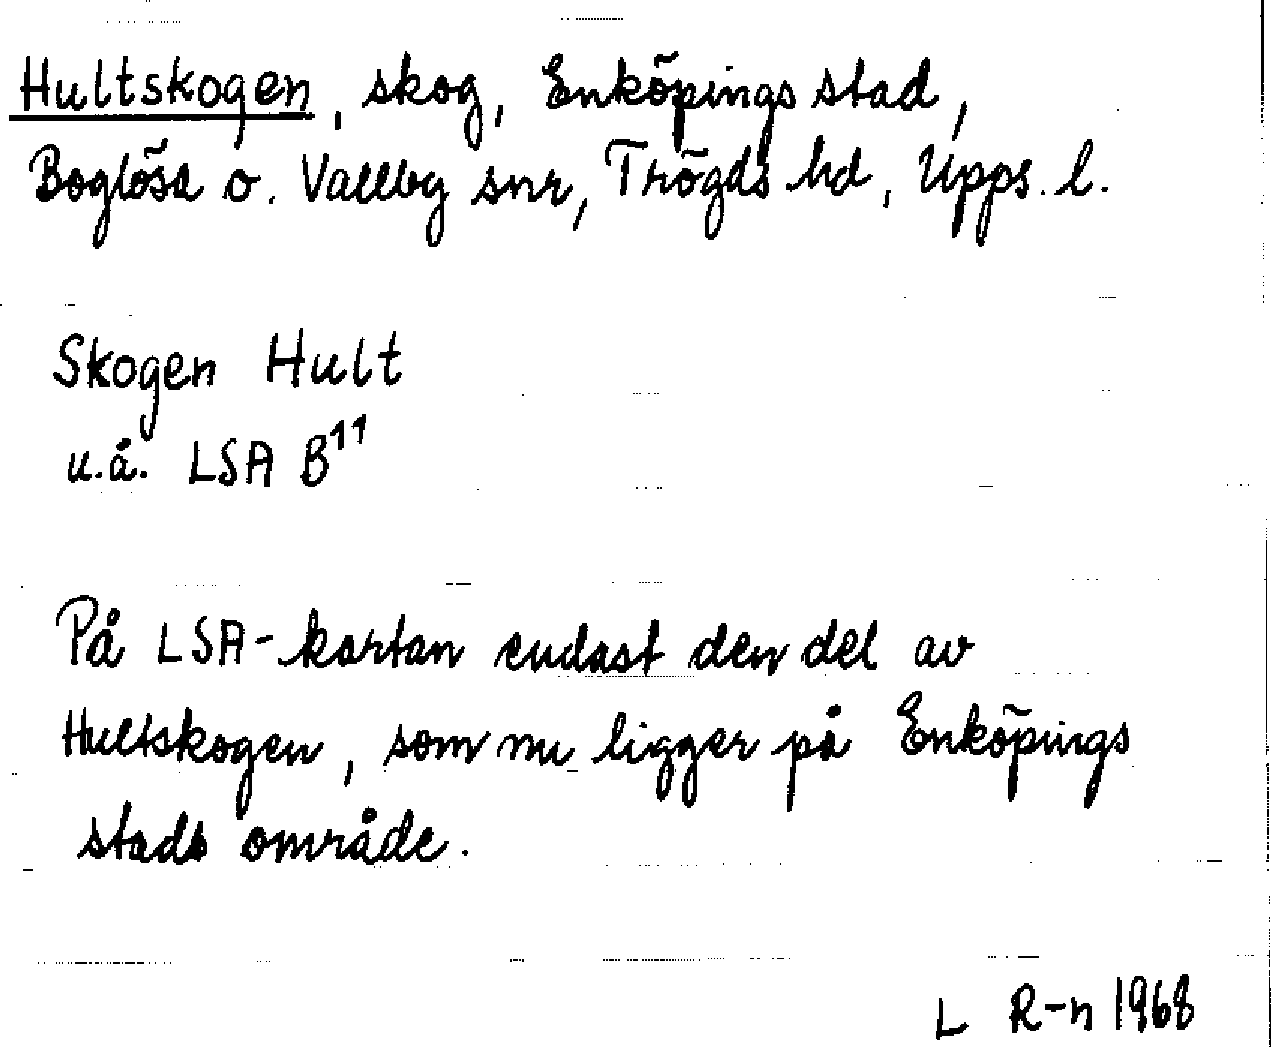 Hultskogen, skog, Enköpings stad,
Boglösa o. Vallby snr, Trögds hd, Upps. l.
Skogen Hult
u.å. LSA B¹¹
På LSA-kartan endast den del av
Hultskogen, som nu ligger på Enköpings
stads område.
L R-n 1968